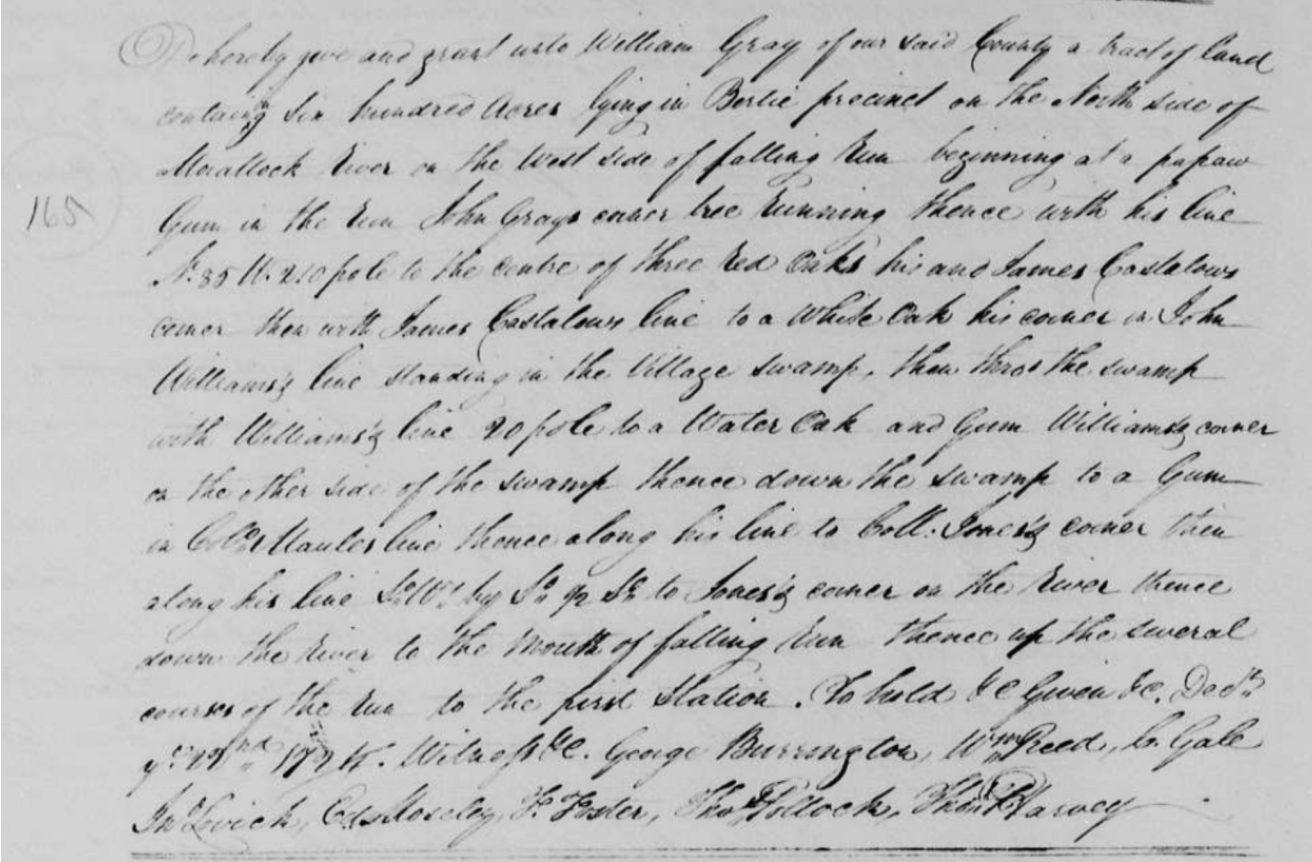 Do hereby give and grant unto William Gray of our said County a tract of land
containg Six hundred Acres lying in Bertie precinct on the North side of
Morattock River on the West side of falling Run beginning at a papaw
165
Gum in the Run John Grays corner tree Running thence with his line
N. 85 W. 210 pole to the centre of three Red Oaks his and James Castalows
corner then with James Castalows line to a White Oak his corner in John
Williams's line standing in the Village swamp, then thro the swamp
with Williams's line 20 pole to a Water Oak and Gum Williams's corner
on the other side of the swamp thence down the swamp to a Gum
in Maules line thence along his line to Coll: Jones's corner then
along his line So. Wt. by So. So. to Jones's corner on the River thence
down the River to the Mouth of falling Run thence up the several
courses of the Run to the first Station. To hold &c Given &c.
Witness &c. George Burrington, Wm. Reed, C. Gale
Jno. Lovick, Ed. Moseley, F. Foster, Tho. Pollock, Thos. Harvey